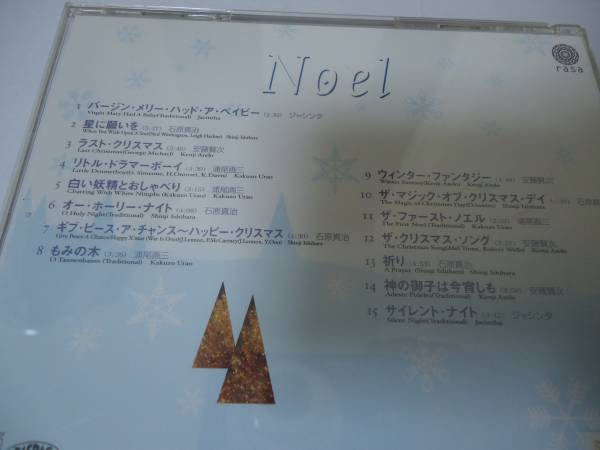 Noel
rasa
1 バージン・メリー・ハッド・ア・ベイビー ジャシンタ
Virgin Mary Had A Baby(Traditional) Jacintha
2 星に願いを (5:27) 石原真治
When You Wish Upon A Star(Ned Washington, Leigh Harline) Shinji Ishihara
3 ラスト・クリスマス 安藤賢次
Last Christmas(George Michael) Kenji Ando
4 リトル・ドラマーボーイ 浦尾画三
Little Drummer(both's Simeone, H.Onorati, K.Davis) Kakuzo Urao
5 白い妖精とおしゃべり (3:15) 浦尾画三
Chatting With White Nimphs (Kakuzo Urao) Kakuzo Urao
6 オー・ホーリー・ナイト 石原真治
O Holy Night(Traditional) Shinji Ishihara
7 ギブ・ピース・ア・チャンス〜ハッピー・クリスマス 石原真治
Give Peace A Chance/Happy X'mas (War Is Over)(J.Lennon, P.McCartney/J.Lennon, Y.Ono) Shinji Ishihara
8 もみの木 浦尾画三
O Tannenbaum (Traditional) Kakuzo Urao
9 ウィンター・ファンタジー 安藤賢次
Winter Fantasy(Kenji Ando) Kenji Ando
10 ザ・マジック・オブ・クリスマス・デイ 石原
The Magic of Christmas Day Shinji Ishihara
11 ザ・ファースト・ノエル 浦尾画三
The First Noel (Traditional) Kakuzo Urao
12 ザ・クリスマス・ソング 安藤賢次
The Christmas Song(Mel Torme, Robert Wells) Kenji Ando
13 祈り 石原真治
A Prayer (Shinji Ishihara) Shinji Ishihara
14 神の御子は今宵しも 安藤賢次
Adeste Fideles(Traditional) Kenji Ando
15 サイレント・ナイト ジャシンタ
Silent Night(Traditional) Jacintha